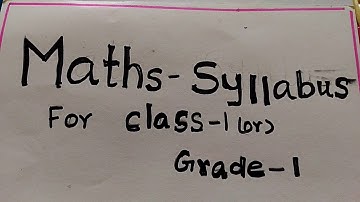 Maths-Syllabus
For class-1 (or)
Grade-1